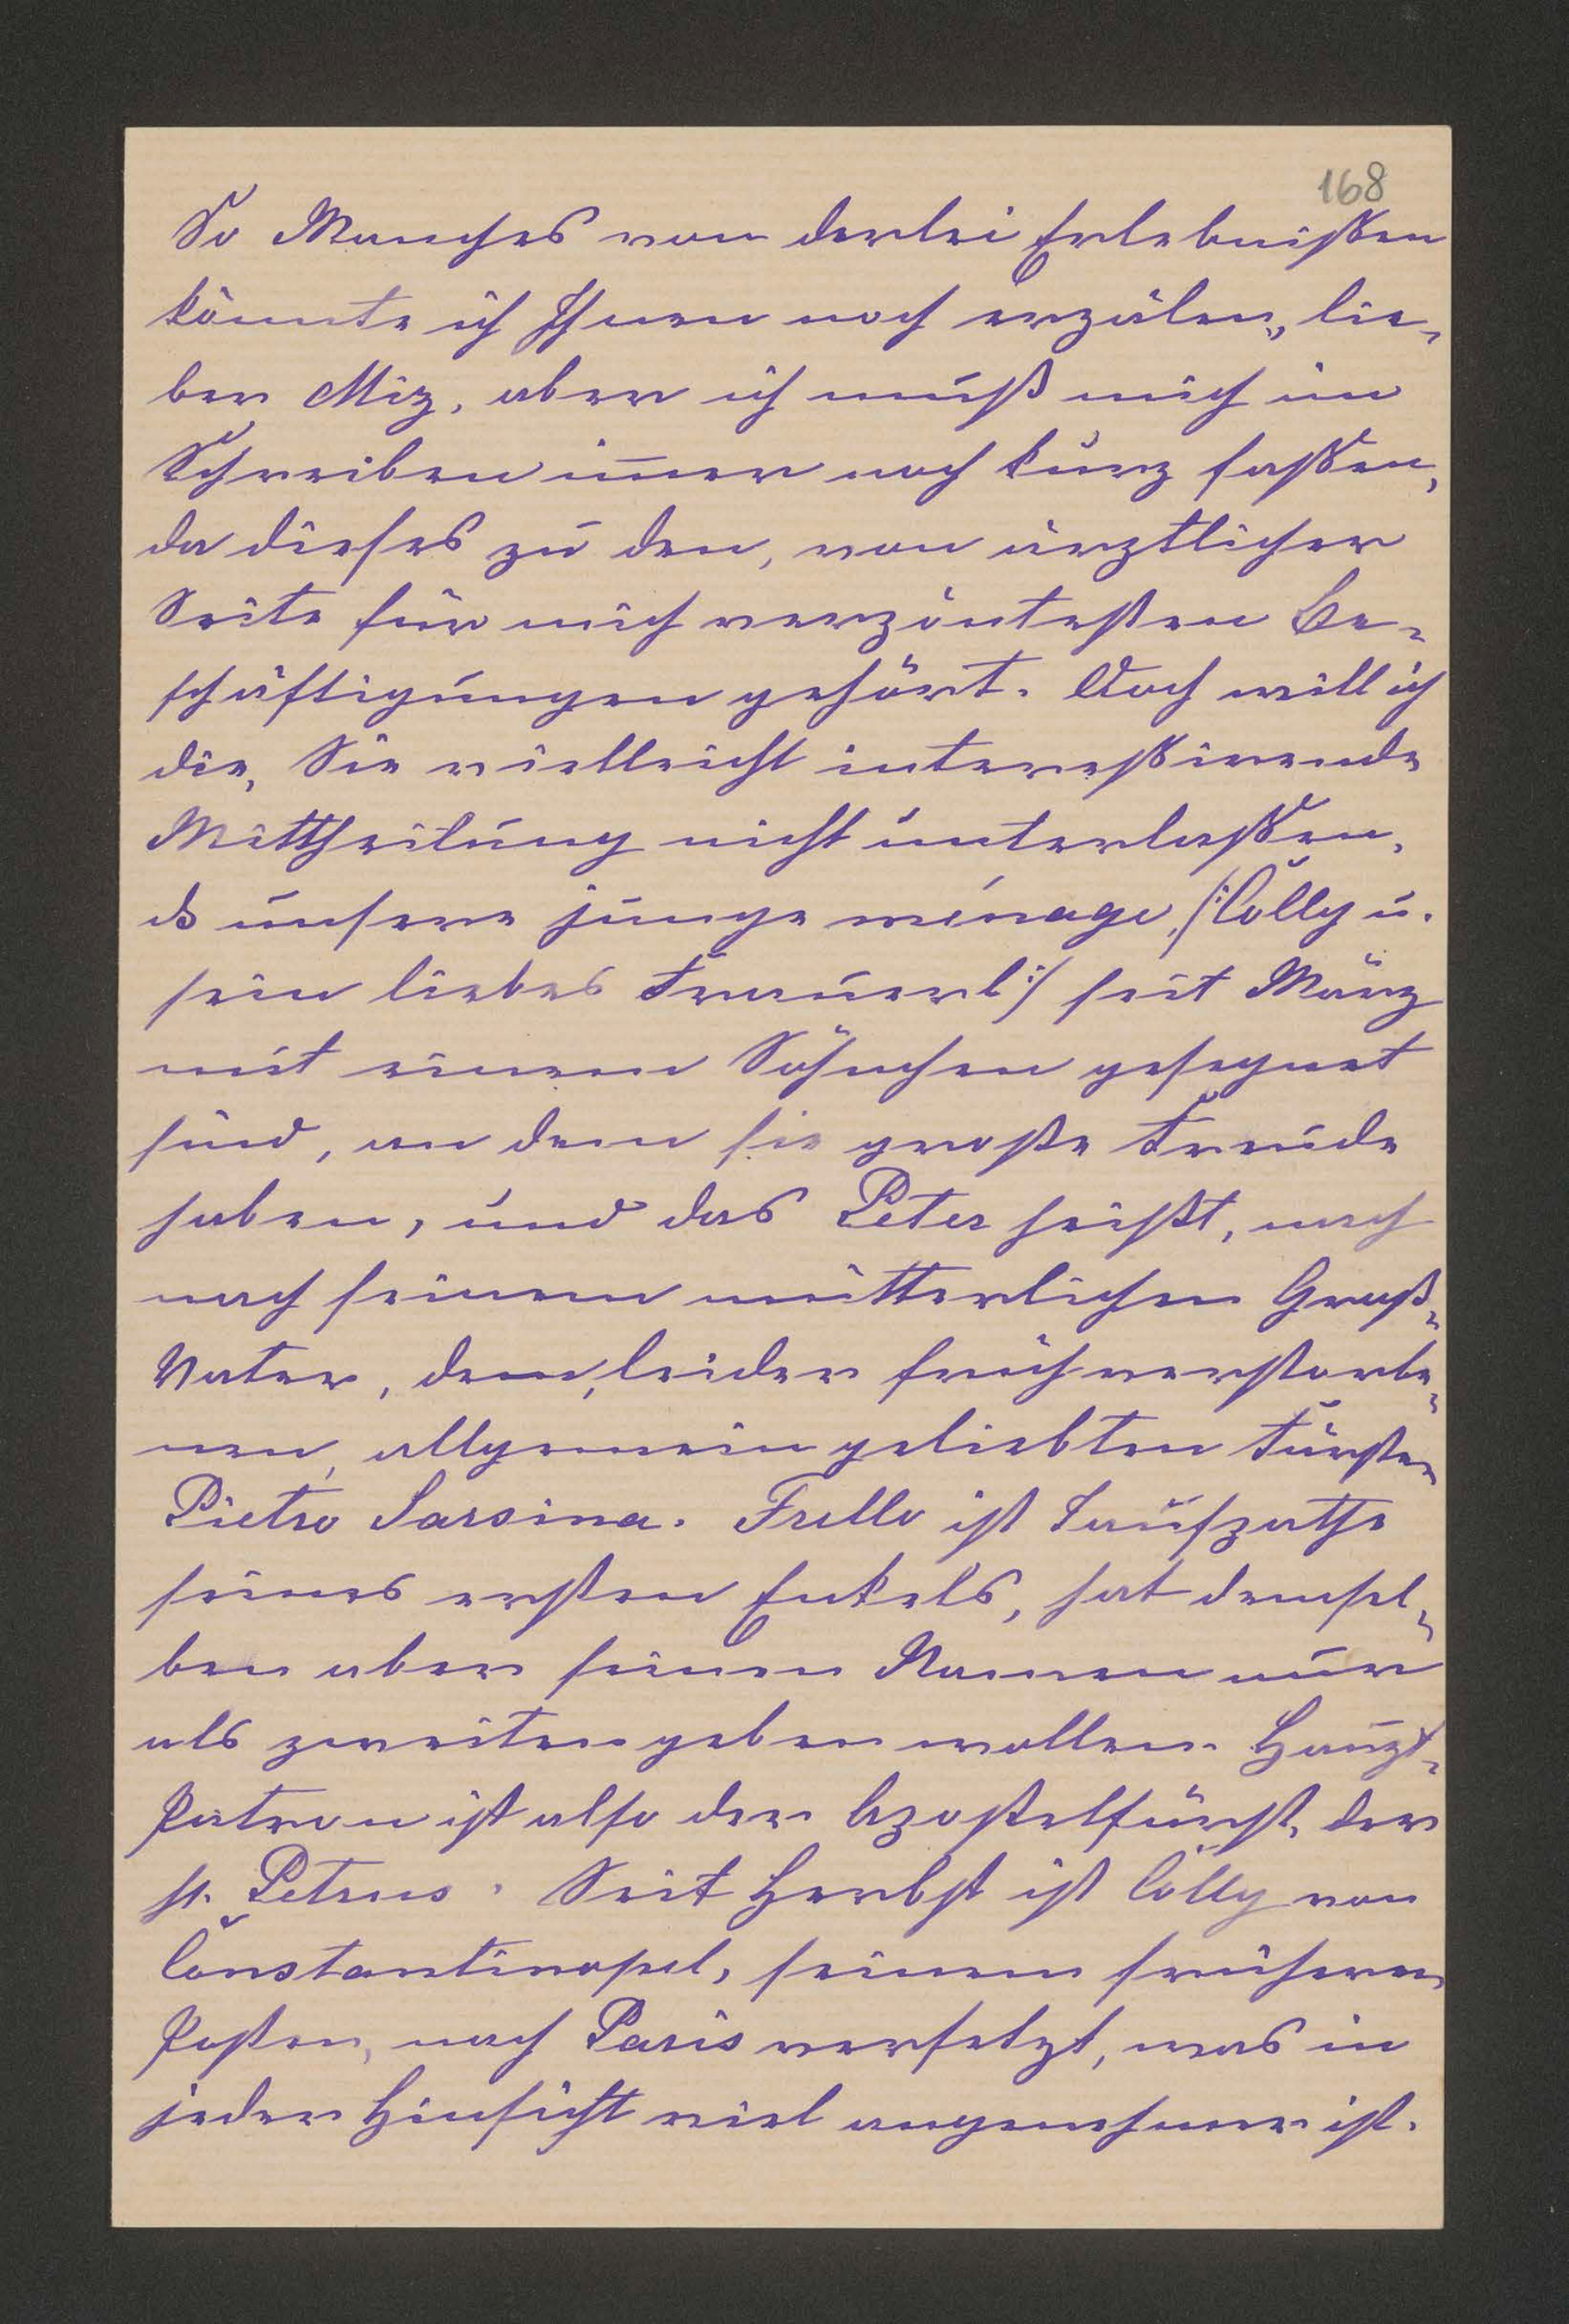 168
So Manches von derlei Erlebnißen
könnte ich Ihnen noch erzälen, lie-
ber Miz, aber ich muß mich im
Schreiben im̅er noch kurz faßen,
da dieses zu den, von ärztlicher
Seite für mich verpöntesten Be-
schäftigungen gehört. Doch will ich
die, Sie vielleicht intereßirende
Mittheilung nicht unterlaßen,
ds unsere junge ménage, /: Colly u.
sein liebes Frauerl :/ seit März
mit einem Söhnchen gesegnet
sind, an dem sie große Freude
haben, und das Peter heißt, nach
nach seinem mütterlichen Groß-
Vater, dem, leider früh verstorbe-
nen, allgemein geliebten Fürsten
Pietro Sarsina. Frello ist Taufpathe
seines ersten Enkels, hat densel-
ben aber seinen Namen nur
als zweiten geben wollen. Haupt-
Patron ist also der Apostelfürst, der
h. Petrus. Seit Herbst ist Colly von
Constantinopel, seinem früheren
Posten, nach Paris versetzt, was in
jeder Hinsicht viel angenehmer ist.